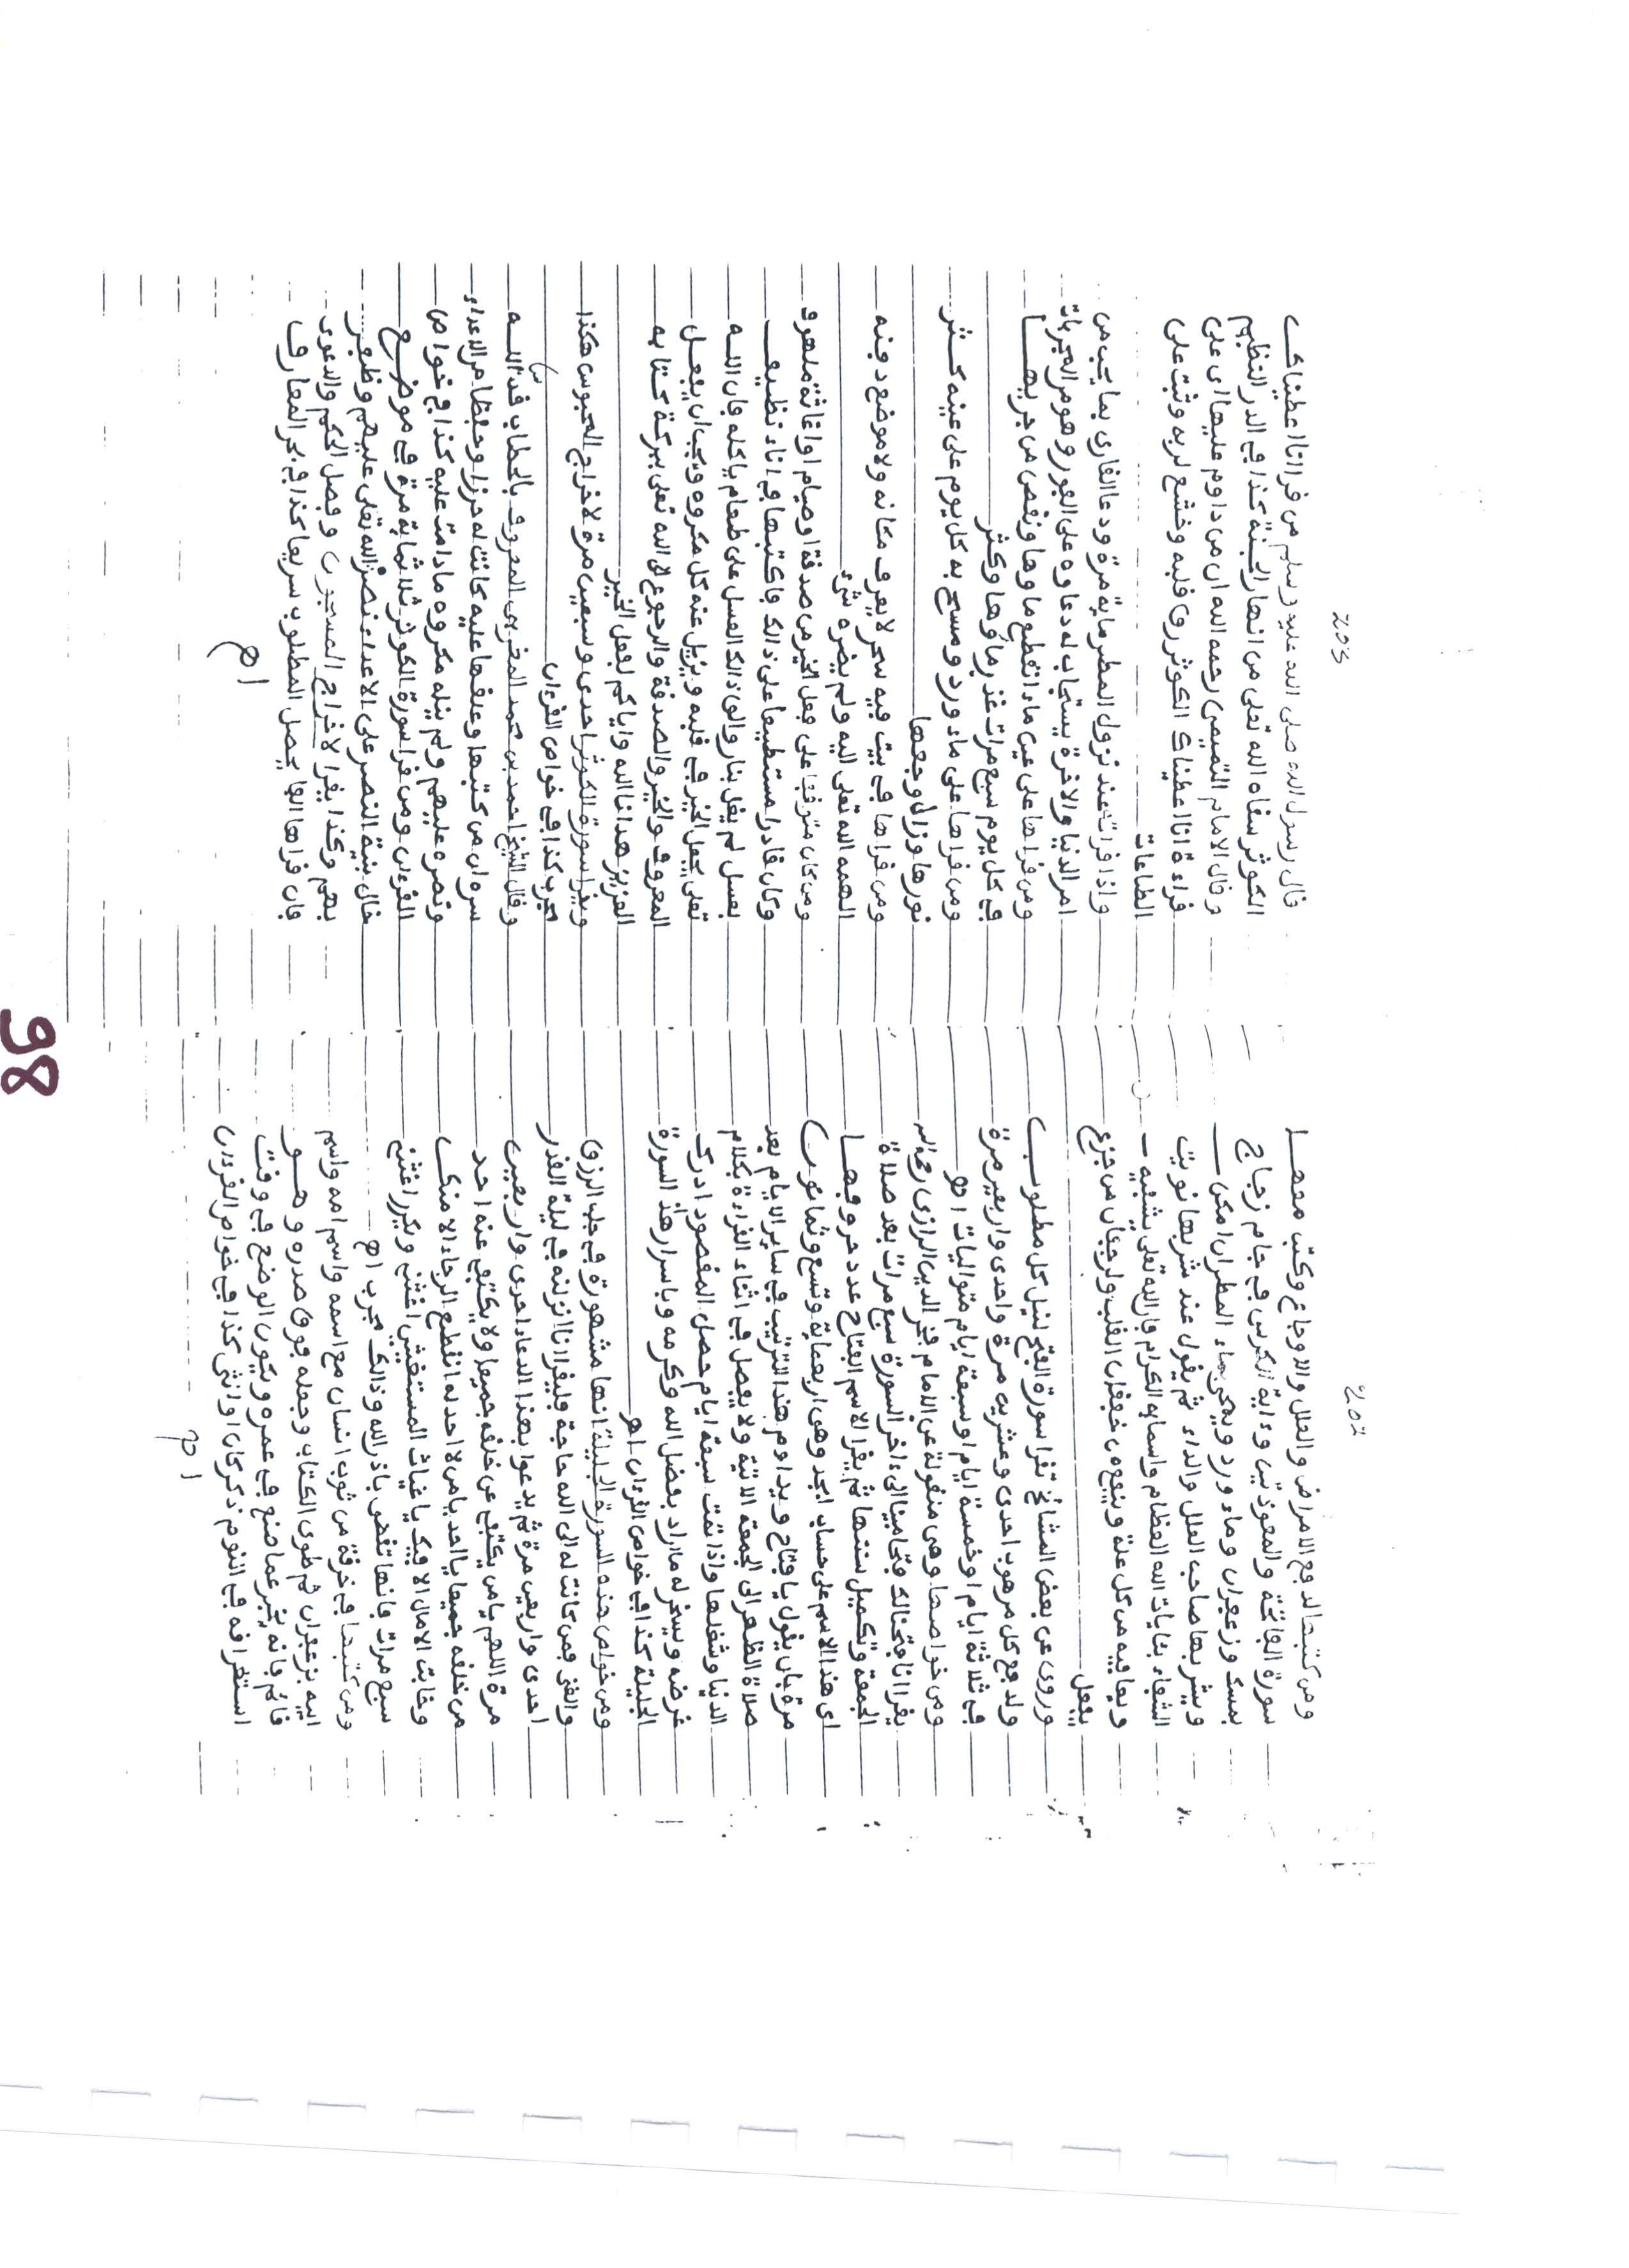 ومن كتبها لدفع الامراض والعلل والاوجاع وكتب معها
سورة الفاتحة والمعوذتين وءاية الكرسي في جام زجاج
بمسك وزعفران وماء ورد ويمحى بماء المطر ان امكن
ويشربها صاحب العلل والداء ثم يقول عند شربها نويت
الشفاء بئايات الله العظام واسمايه الكرام فان الله تعلى يشفيه
ويعافيه من كل علة وينفع من خفقان القلب والرجفان من جزع
يفعل
وروي عن بعض المشائخ تقرا سورة الفتح لنيل كل مطلوب
ولدفع كل مرهوب احدى وعشرين مرة واحدى واربعين مرة
في ثلاثة ايام او خمسة ايام او سبعة ايام متواليات اھ
ومن خواصها وهى منقولة عن الامام فخر الدين الرازى رحمه الله
يقرا انا فتحنا لك فتحا مبينا الى ءاخر السورة سبع مرات بعد صلاة
الجمعة وتكميل سنتها ثم يقرا الاسم الفتاح عدد حروفها
اى هذا الاسم على حساب ابجد وهى اربعماية وتسع وثمانون
مرة بان يقول يا فتاح ويداوم هذا الترتيب في ساير الايام بعد
صلاة الظهر الى الجمعة الاتية ولا يفصل في اثناء القراءة بكلام
الدنيا وشغلها واذا تمت سبعة ايام حصل المقصود ادرك
غرضه ويسخر له ما اراد بفضل الله وكرمه وباسرار هذه السورة
الجليلة كذا في خواص القرءان اھ
ومن خواص هذه السورة الجليلة انها مشهورة في جلب الرزق
والغنى فمن كانت له الى الله حاجة فليقرا انا انزلنه في ليلة القدر
احدى واربعين مرة ثم يدعوا بهذا الدعاء احدى واربعين
مرة اللهم يا من يكتفي عن خلفه جميعا ولا يكتفي عنه احد
من خلفه جميعا يا احد يا من لا احد له انقطع الرجاء الا منك
وخابت الامال الا فيك يا غياث المستغيثين اغثني ويكرر اغثني
سبع مرات فانها تقضى باذن الله وذالك مجرب اھ
ومن كتبها في خرقة من ثوب انسان مع اسمه واسم امه واسم
ابيه بزعفران ثم طوى الكتاب وجعله فوق صدره وهو
نائم فانه يخبر عما صنع في عمره ويكون الوضع في وقت
استغراقه في النوم ذكر كان او انثى كذا في خواص القرءان
اھ
253
قال رسول الله صلى الله عليه وسلم من قرا انا اعطيناك
الكوثر سقاه الله تعلى من انهار الجنة كذا في الدر النظيم
وقال الامام التميمي رحمه الله ان من داوم عليها اى على
قراءة انا اعطيناك الكوثر رق قلبه وخشع لربه وثبت على
الطاعات
واذا قرات عند نزول المطر ماية مرة ودعا القارى بما يحب من
امر الدنيا والاخرة يستجاب له دعاوه على الفور وهو من المجربات
ومن قراها على عين ماء انقطع ماوها ونقص من جريها
في كل يوم سبع مرات غزر ماوها وكثر
ومن قراها على ماء ورد ومسح به كل يوم على عينيه كثر
نورها وزال وجعها
ومن قراها في بيت فيه سحر لا يعرف مكانه ولا موضع دفنه
الهمه الله تعلى اليه ولم يضره شيء
ومن كان متوقفا على فعل الخير من صدقة او صيام او اغاثة ملهوف
وكان قادرا مستطيعا على ذالك فاكتبها في اناء نظيف
بعسل لم يغل بنار والق ذالك العسل على طعام ياكله فان الله
تعلى يجعل الخير في قلبه ويزيل عنه كل مكروه ويحب ان يفعل
المعروف والخير والصدقة والرجوع الى الله تعلى ببركة كتابه
العزيز هدانا الله واياكم لفعل الخير
ويقرا سورة الكوثر احدى وسبعين مرة لاخراج المحبوس هكذا
مجرب كذا في خواص القرءان
وقال الشيخ احمد بن محمد المغربي المعروف بالحطاب قدس الله
سره ان من كتبها وعلقها عليه كانت له حرزا وحفظا من الاعداء
ونصره عليهم ولم ينله مكروه ما دامت عليه كذا في خواص
القرءان ومن قرا سورة الكوثر ثلاثماية مرة في موضع
خال بنية النصر على الاعداء نصره الله تعلى عليهم وظفر
بهم وكذا يقرا لاخراج المسجون وفصل الحكم والدعوى
فان قراها الفا يحصل المطلوب سريعا كذا في بحر المعارف
اھ
98